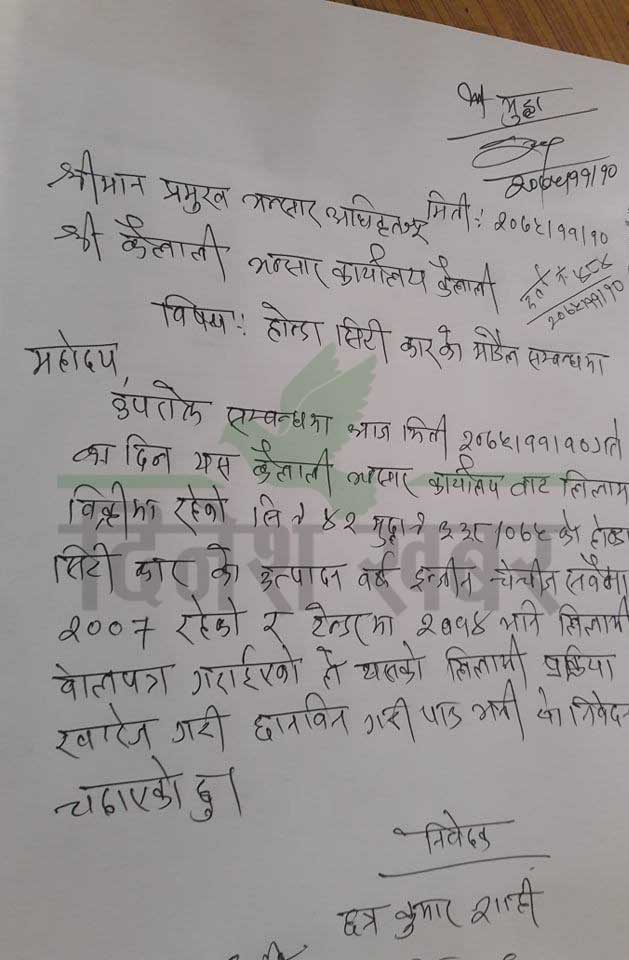 मुद्दा
२०७५/११/१०
श्रीमान प्रमुख भन्सार अधिकृतज्यू मिती: २०७५/११/१०
श्री कैलाली भन्सार कार्यालय कैलाली
२०७५/११/१०
विषय: होन्डा सिटी कारको मोडेल सम्बन्धमा
महोदय,
उपरोक्त सम्बन्धमा आज मिती २०७५।११।१० गते
का दिन यस कैलाली भन्सार कार्यालय बाट लिलाम
बिक्रीमा रहेको बि नं ४२ मुद्दा नं ३३९/०७५ को होन्डा
सिटी कार को उत्पादन वर्ष इन्जीन चेचीज सबैमा
2007 रहेको र टेन्डरमा २०१४ भनि लिलामी
बोलपत्र गराईएको हो यसको लिलामी प्रक्रिया
खारेज गरी छानविन गरी पाउ भनी यो निवेदन
चढाएको छु।
निवेदक
छत्र कुमार शाही
दिनेश खबर